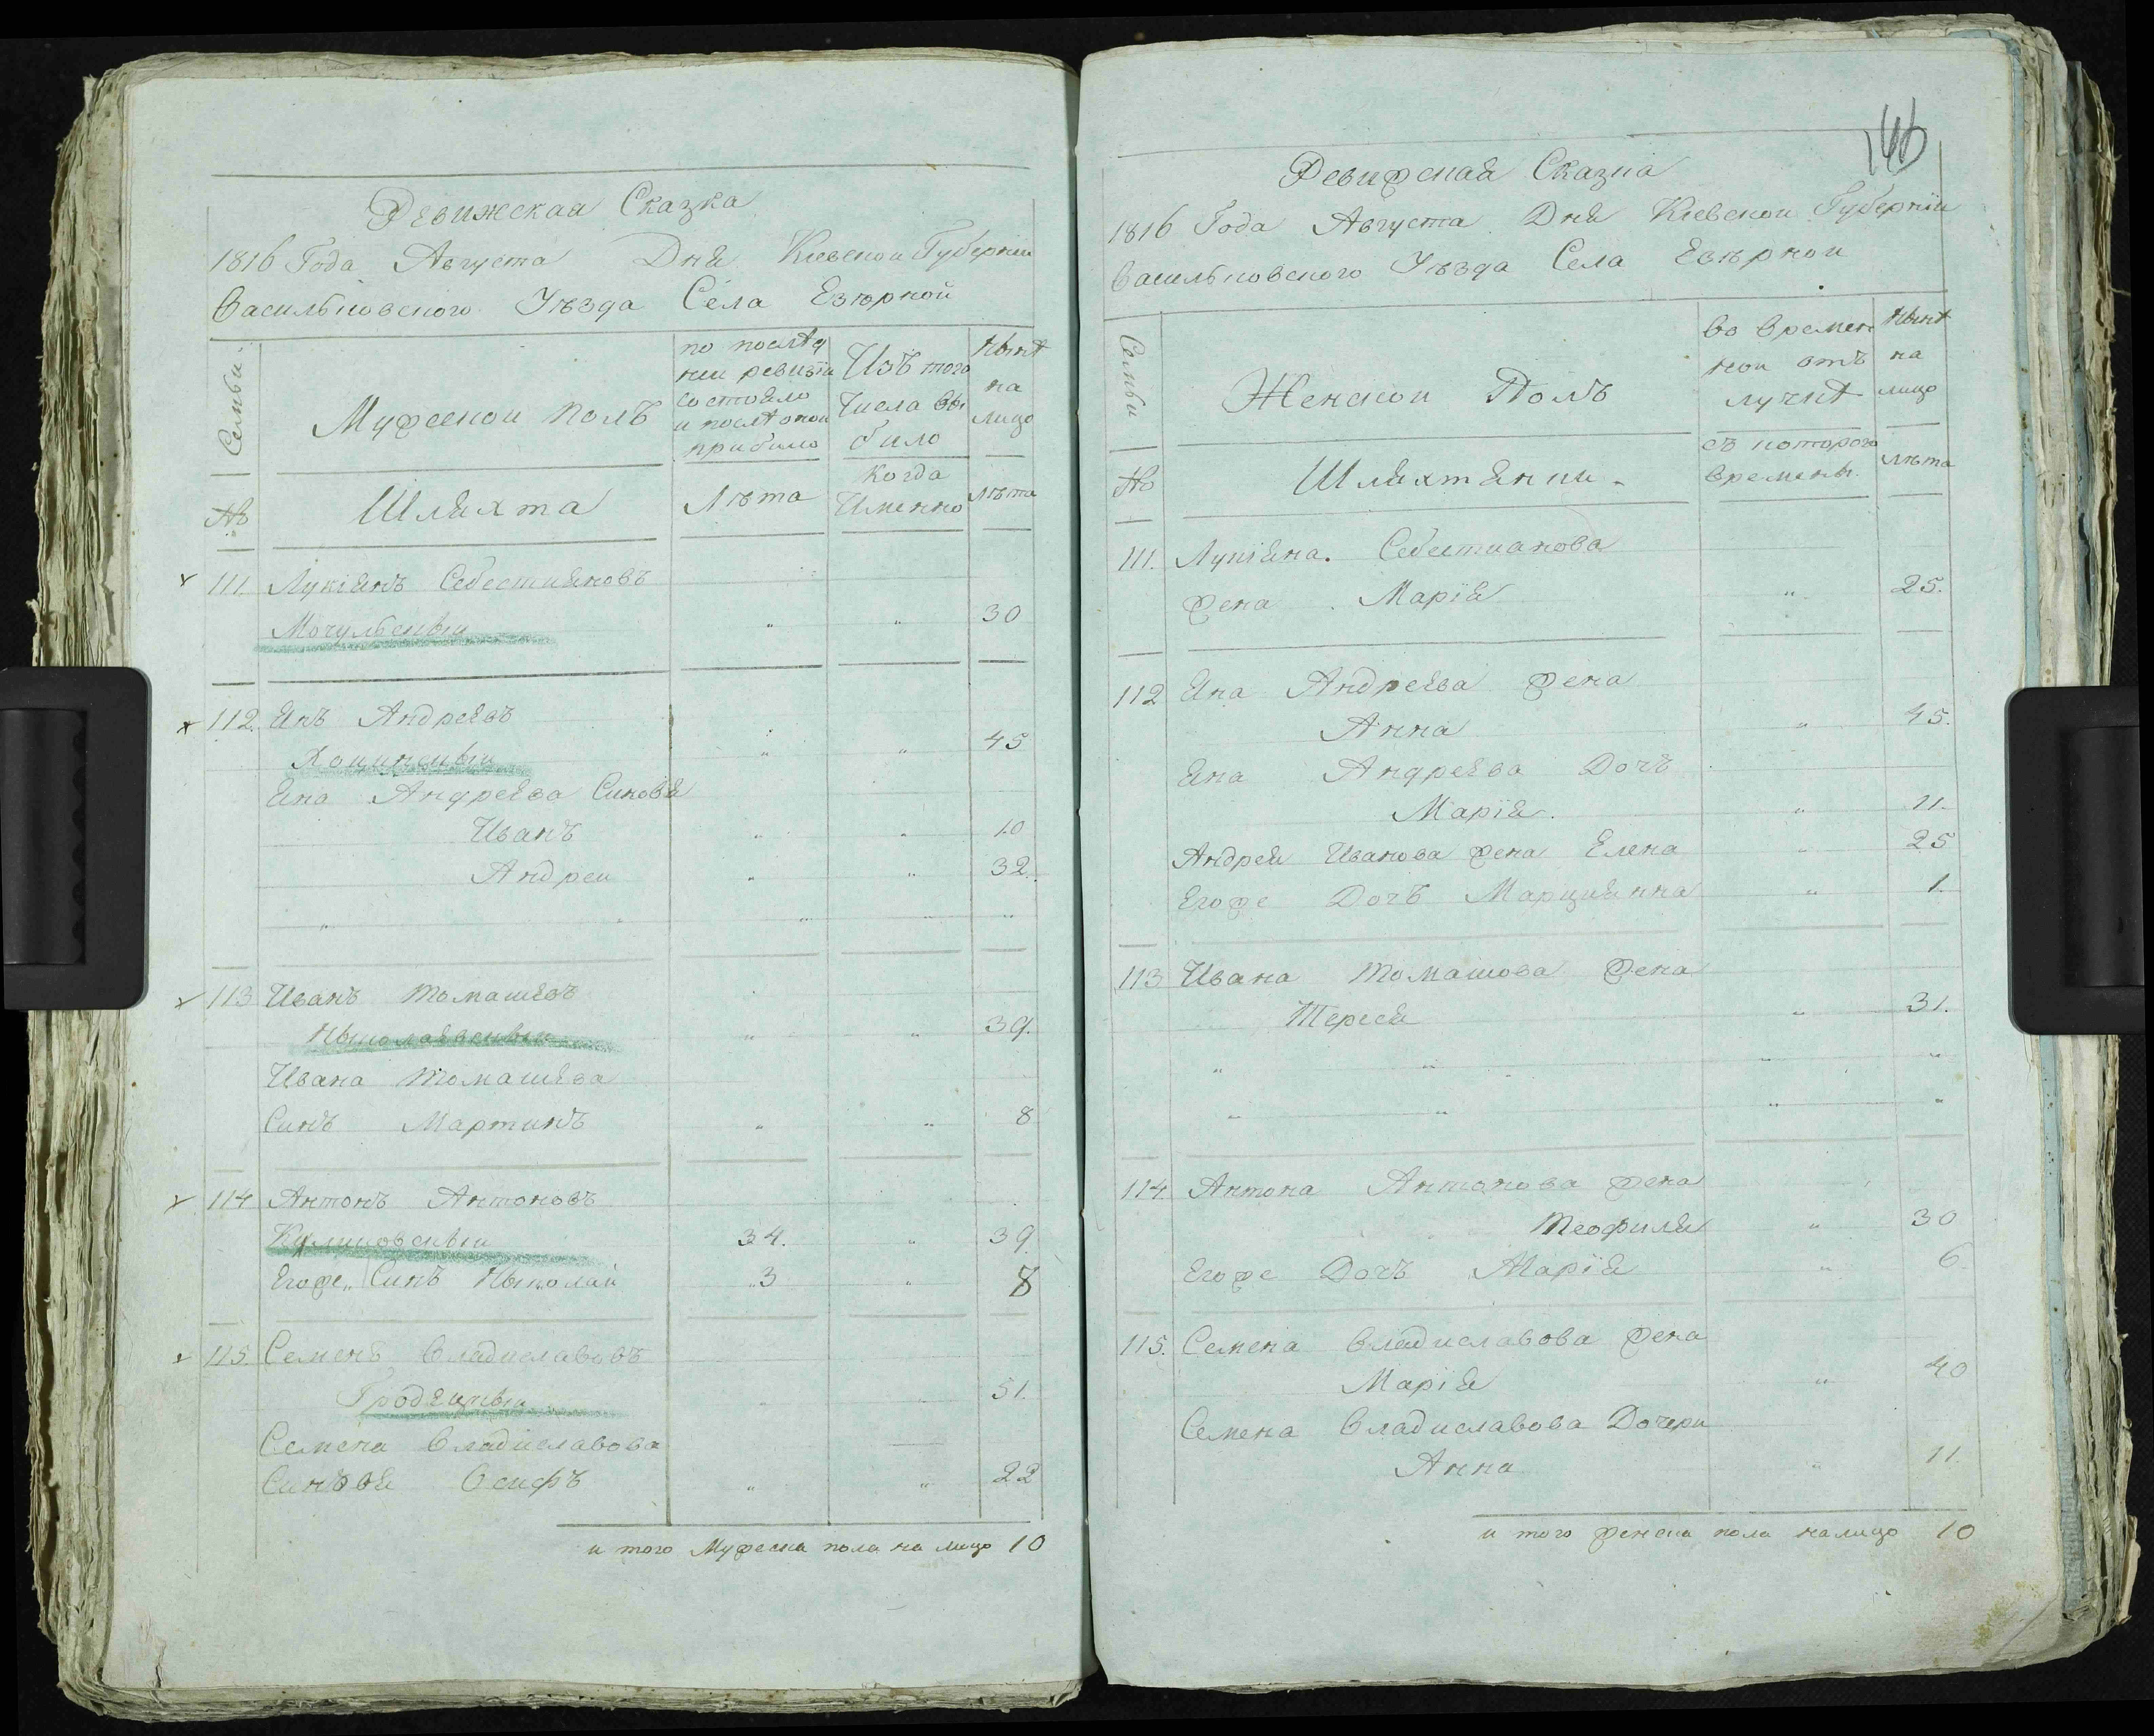 Ревижская Сказка
1816 Года Августа Дня Киевской Губернии
Васильковского Уѣзда Села Езѣрной
Семьи
Мужеской полъ
по послѣд
ней ревизіи
состояло
и послѣ оной
прибило
Изъ того
Числа вы
било
нынѣ
на
лицо
№
Шляхта
Лѣта
Когда
Именно
лѣта
111. Лукіянъ Себестияновъ
Мочульскый " " 30
112. Янъ Андреевъ
" " 45
Яна Андреева Синовя
Иванъ " " 10
Андрей " " 32.
" " " " "
113 Иванъ Томашевъ
Ныколаевскый " " 39.
Ивана Томашева
Синъ Мартинъ " " 8
114 Антонъ Антоновъ
Куликовскый 34. " 39
Егоже Синъ Ныколай 3 " 8
115 Семенъ Владиславовъ
Гродецкый " " 51.
Семена Владиславова
Синовя Осифъ " " 22
и того Мужеска пола на лицо 10
146
Ревижская Сказка
1816 Года Августа Дня Киевской Губернии
Васильковского Уѣзда Села Езѣрной
Семьи
Женской Полъ
во Времен
ной отъ
лучкѣ
нынѣ
на
лицо
№
Шляхтянки
съ которого
Времены.
лѣта
111. Лукіяна Себестианова
жена Марія " 25.
112 Яна Андреева жена
Анна " 45.
Яна Андреева Дочъ
Марія " 11.
Андрея Иванова жена Елена " 25
Егоже Дочъ Марциянна " 1.
113 Ивана Томашова жена
Тереся " 31.
" " " "
" " " "
114. Антона Антонова жена
Теофиля " 30
Егоже Дочъ Марія " 6.
115. Семена Владиславова жена
Марія " 40
Семена Владиславова Дочери
Анна " 11.
и того женска пола налицо 10